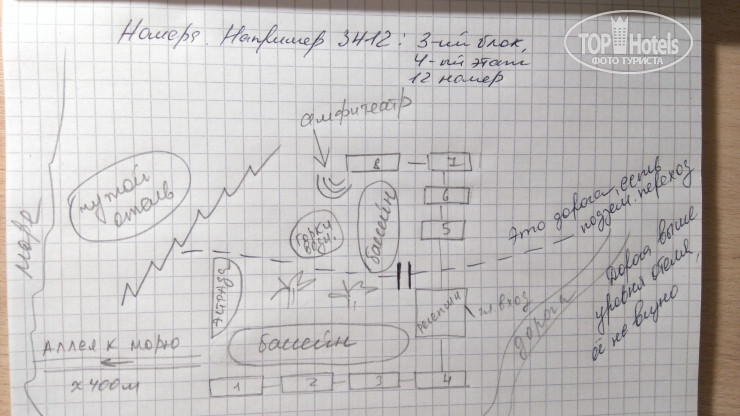 Номера. Например 3412: 3-ий блок,
4-ый этаж
12 номер
TOP Hotels
ФОТО ТУРИСТА
амфитеатр
чужой
отель
море
8
7
6
5
бассейн
горки
водн.
Это дорога, есть
подзем. переход
Дорога выше
уровня отеля,
её не видно
дорога
эстрада
ресепшн
гл. вход
бассейн
Аллея к морю
х400м
1
2
3
4